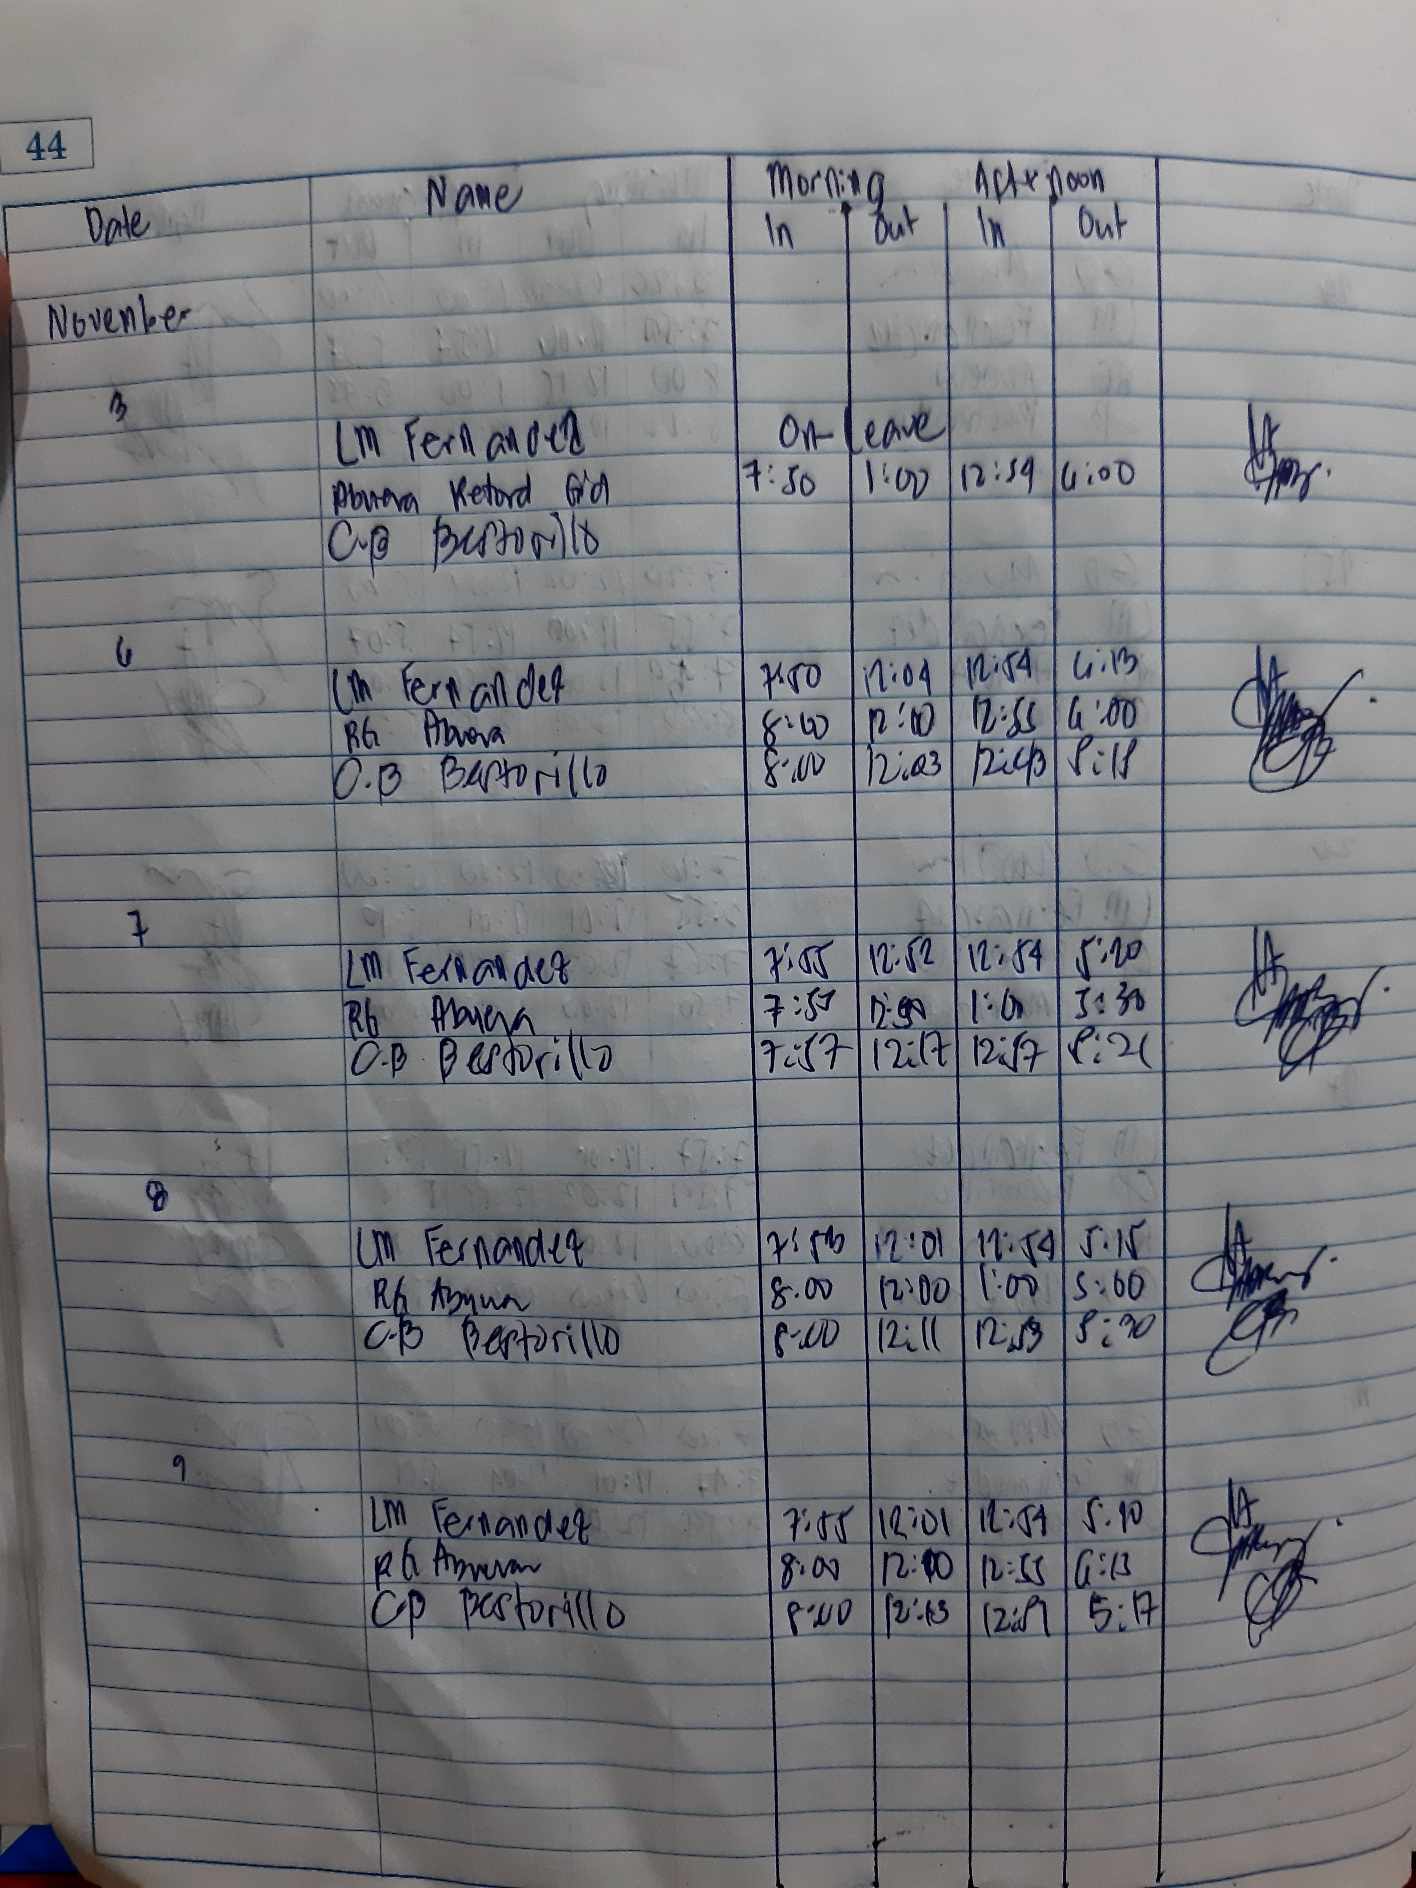 44
Date Name Morning Afternoon
In Out In Out
November
3
LM Fernandez On Leave
Abuera 7:50 1:00 12:54 4:00
C.B Bestorillo
6
LM Fernandez 7:50 12:04 12:54 4:13
RG Abuera 8:00 12:00 12:55 4:00
C.B Bestorillo 8:00 12:03 12:43 5:15
7
LM Fernandez 7:55 12:52 12:54 5:20
RG Abuera 7:57 1:00 5:30
C.B Bestorillo 7:57 12:17 12:57 5:21
8
LM Fernandez 7:53 12:01 12:54 5:15
RG Abuera 8:00 12:00 1:00 5:00
C.B Bestorillo 8:00 12:11 12:53 5:30
9
LM Fernandez 7:55 12:01 12:54 5:10
RG Abuera 8:00 12:00 12:55 4:13
C.B Bestorillo 8:00 12:13 12:51 5:17